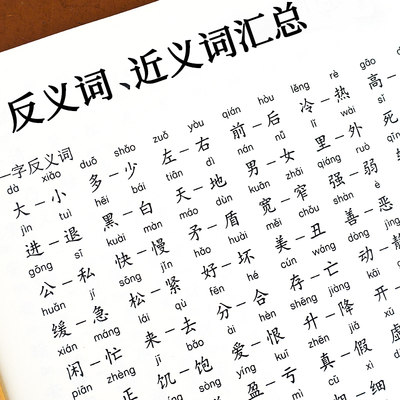 反义词、近义词汇总
一字反义词
dà xiǎo duō shǎo zuǒ yòu qián hòu lěng rè gāo
大－小 多－少 左－右 前－后 冷－热 高－
jìn tuì hēi bái tiān dì nán nǚ lǐ wài sǐ
进－退 黑－白 天－地 男－女 里－外 死
gōng sī kuài màn máo dùn kuān zhǎi qiáng ruò
公－私 快－慢 矛－盾 宽－窄 强－弱
huǎn jí sōng jǐn hǎo huài měi chǒu shàn è
缓－急 松－紧 好－坏 美－丑 善－恶
xián máng lái qù fēn hé cún wáng dòng jìng
闲－忙 来－去 分－合 存－亡 动－静
piān zhèng jī bǎo ài hèn shēng jiàng kāi
正 饥－饱 爱－恨 升－降 开－
yíng kuī zhēn jiǎ xū
盈－亏 真－假 虚